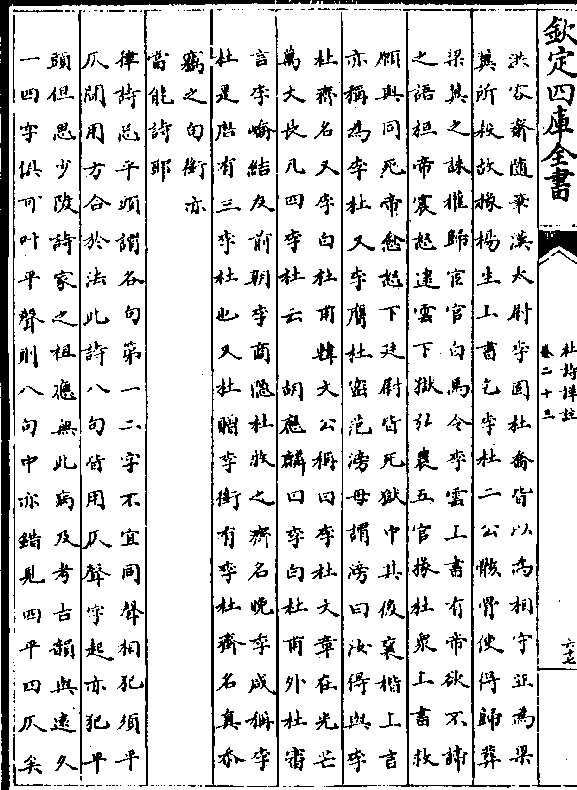 欽定四庫全書
杜詩詳註
卷二十三
六十七
洪容齋隨筆漢太尉李固杜喬皆以為相守正為梁
冀所殺故掾楊生上書乞李杜二公骸骨使得歸葬
梁冀之誅權歸宦官白馬令李雲上書有帝欲不諦
之語桓帝震怒逮雲下獄弘農五官掾杜衆上書救
願與同死帝愈怒下廷尉皆死獄中其後襄楷上言
亦稱為李杜又李膺杜密范滂母謂滂曰汝得與李
杜齊名又李白杜甫韓文公稱曰李杜文章在光芒
萬丈長凡四李杜云 胡應麟曰李白杜甫外杜審
言李嶠結友前朝李商隱杜牧之齊名晚季咸稱李
杜是唐有三李杜也又杜贈李銜有李杜齊名真忝
竊之句銜亦
當能詩耶
律詩忌平頭謂各句第一二字不宜同聲相犯須平
仄間用方合於法此詩八句皆用仄聲字起亦犯平
頭但思少陵詩家之祖應無此病及考古韻與遠久
一四字俱可叶平聲則八句中亦錯見四平四仄矣